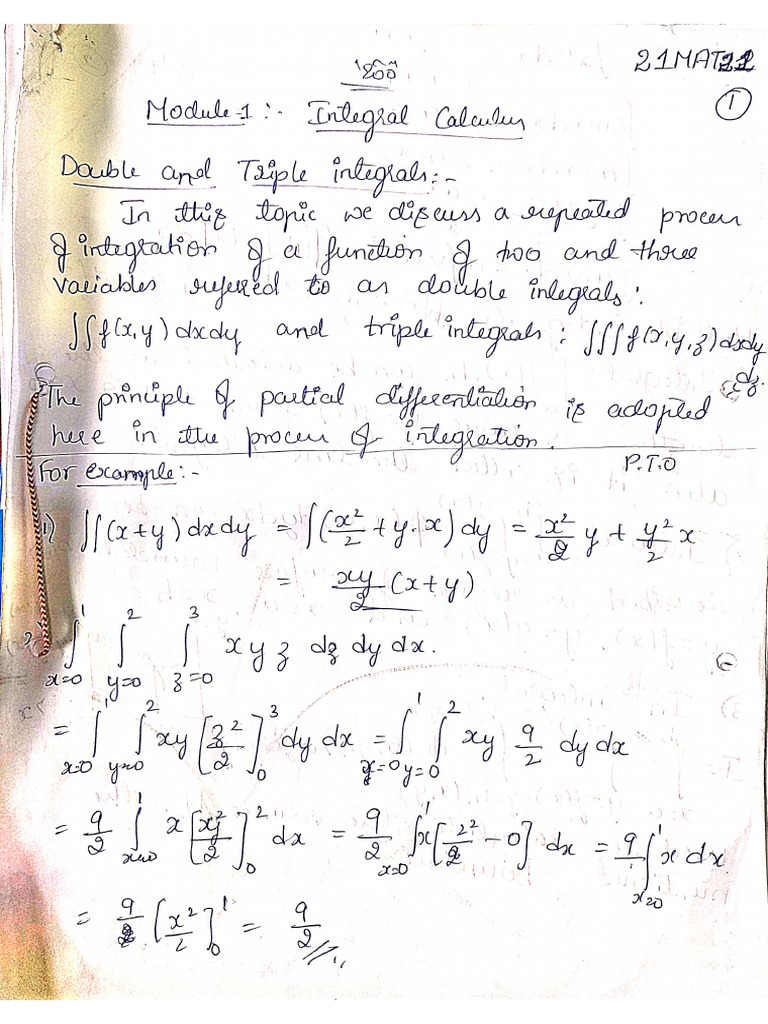 21MAT22
1
Module-1 :- Integral Calculus
Double and Triple integrals:-
In this topic we discuss a repeated process
of integration of a function of two and three
variables referred to as double integrals:
∫∫f(x,y)dxdy and triple integrals: ∫∫∫f(x,y,z)dxdy
dz.
The principle of partial differentiation is adopted
here in the process of integration.
P.T.O
For example:-
1) ∫∫(x+y)dxdy = ∫(x²/2 + y·x)dy = x²/2 y + y²/2 x
= xy/2 (x+y)
2) ∫_{x=0}^{1} ∫_{y=0}^{2} ∫_{z=0}^{3} xyz dz dy dx.
= ∫_{x=0}^{1} ∫_{y=0}^{2} xy [z²/2]_0^3 dy dx = ∫_{x=0}^{1} ∫_{y=0}^{2} xy 9/2 dy dx
= 9/2 ∫_{x=0}^{1} x [y²/2]_0^2 dx = 9/2 ∫_{x=0}^{1} x [2²/2 - 0] dx = 9/1 ∫_{x=0}^{1} x dx.
= 9 [x²/2]_0^1 = 9/2 //